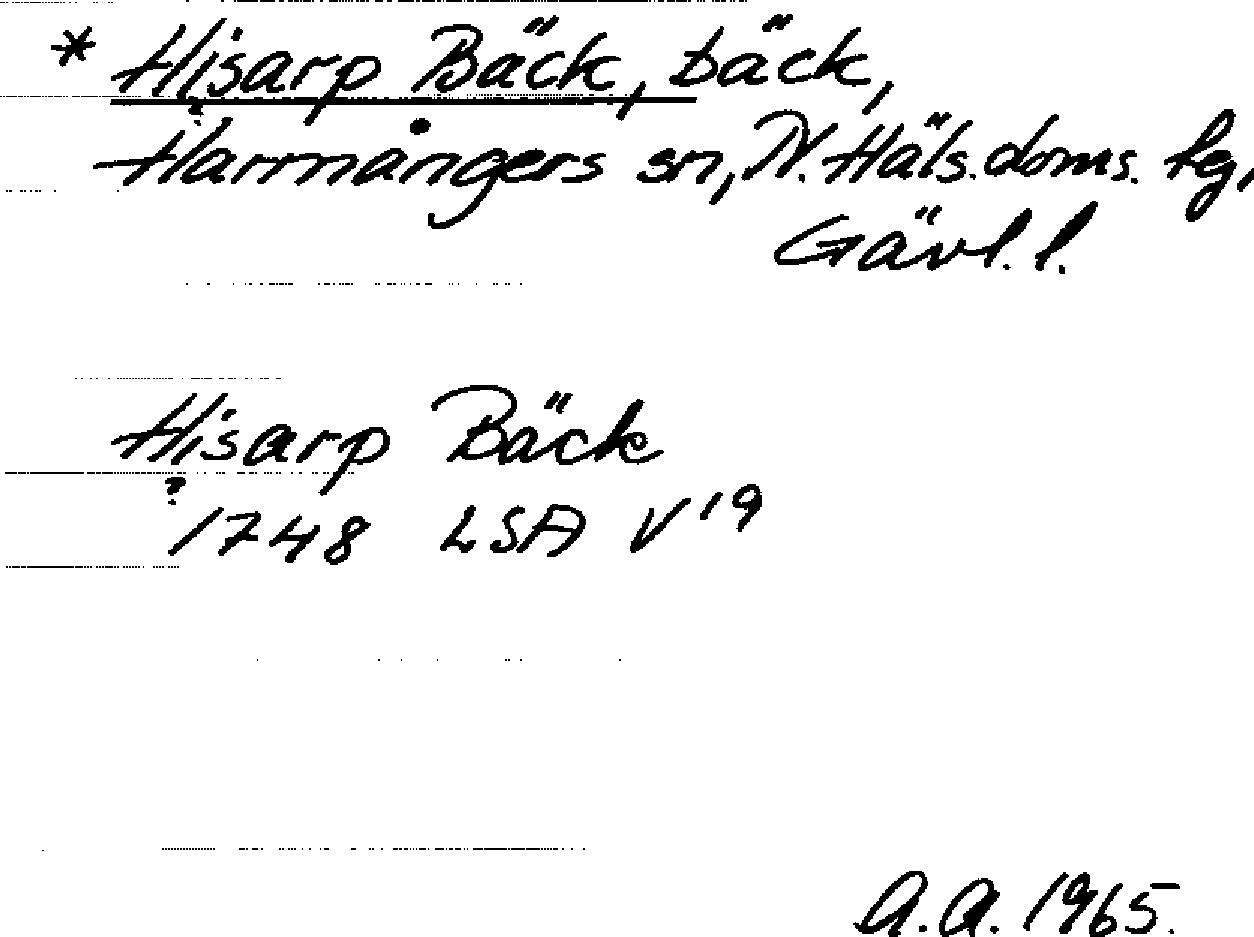 * Hisarp Bäck, bäck,
?
Harmångers sn, N. Häls. doms. fg,
Gävl. l.
Hisarp Bäck
?
1748 LSA V¹⁹
A.A. 1965.